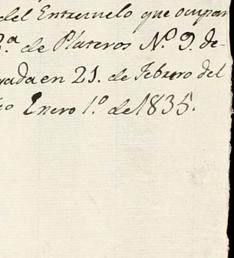 del Entresuelo que ocupan
3.ª de Plateros N.º 9. de-
gada en 21. de Febrero del
Enero 1.º de 1835.